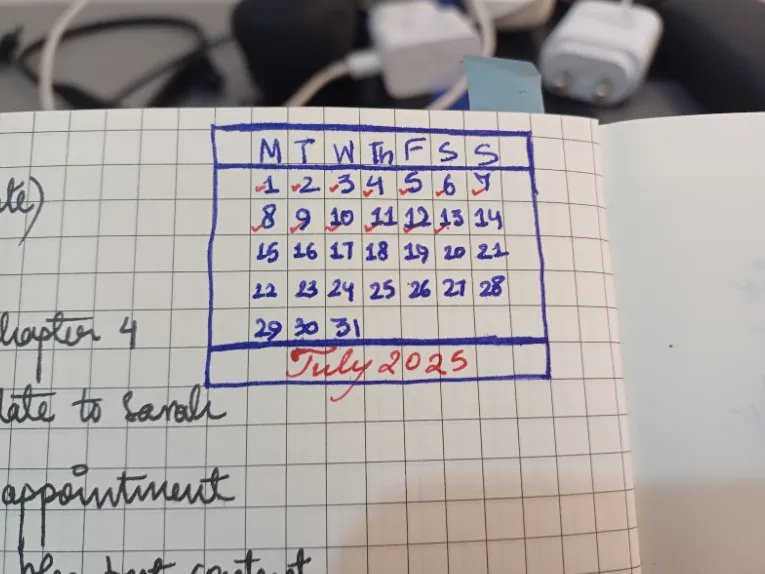 M T W Th F S S
1 2 3 4 5 6 7
8 9 10 11 12 13 14
15 16 17 18 19 20 21
22 23 24 25 26 27 28
29 30 31
July 2025
late to Sarah
appointment